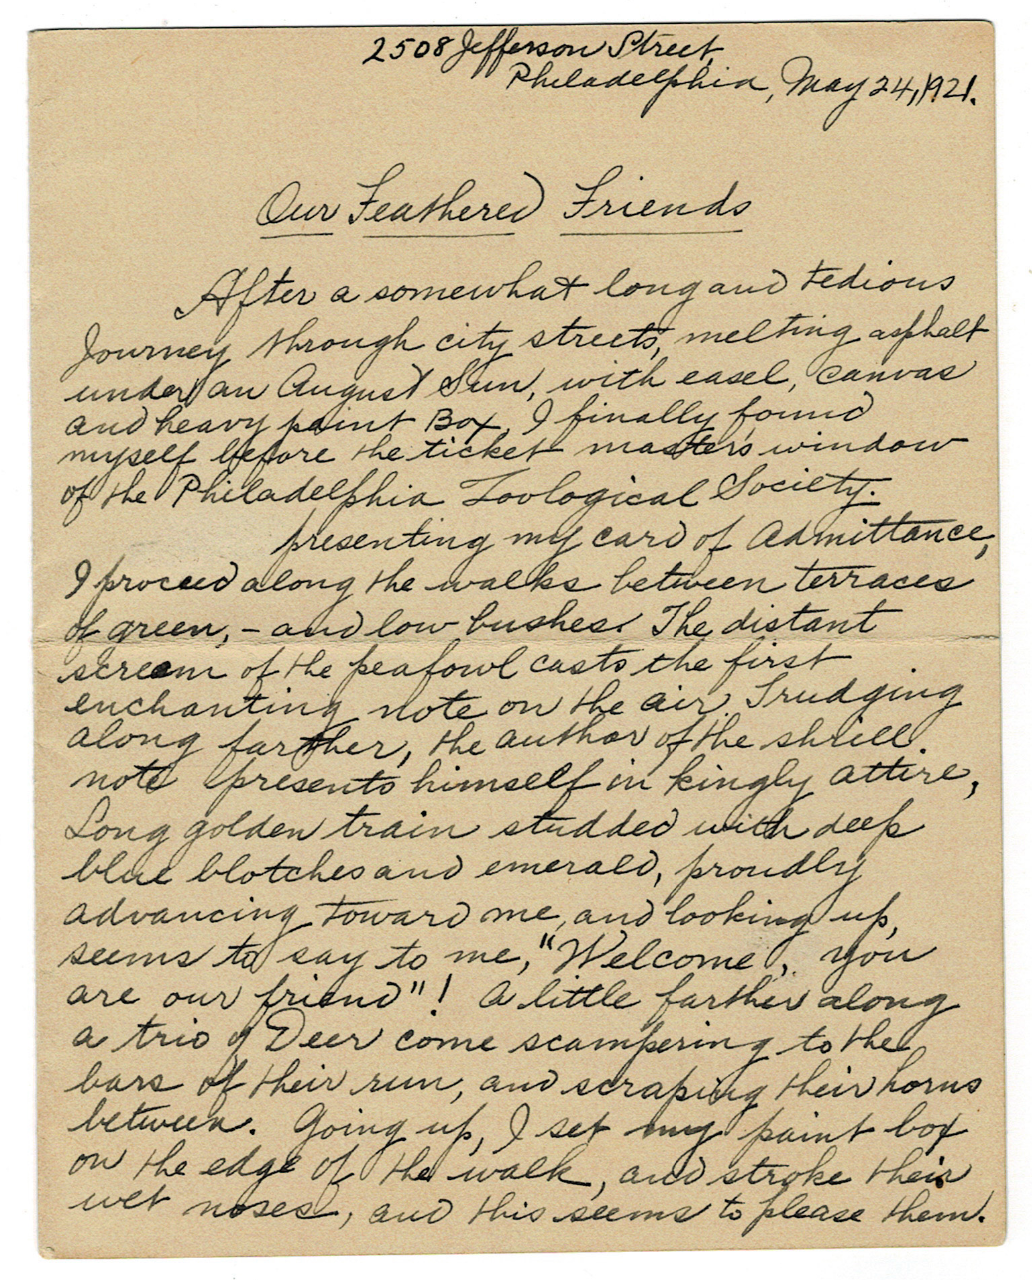 2508 Jefferson Street,
Philadelphia, May 24, 1921.
Our Feathered Friends
After a somewhat long and tedious
Journey through city streets, melting asphalt
under an August Sun, with easel, canvas
and heavy paint Box, I finally found
myself before the ticket master's window
of the Philadelphia Zoological Society.
presenting my card of Admittance,
I proceed along the walks between terraces
of green, - and low bushes. The distant
scream of the peafowl casts the first
enchanting note on the air, Trudging
along farther, the author of the shrill
note presents himself in kingly attire,
Long golden train studded with deep
blue blotches and emerald, proudly
advancing toward me, and looking up,
seems to say to me, "Welcome, you
are our friend"! A little farther along
a trio of Deer come scampering to the
bars of their run, and scraping their horns
between. Going up, I set my paint box
on the edge of the walk, and stroke their
wet noses, and this seems to please them.